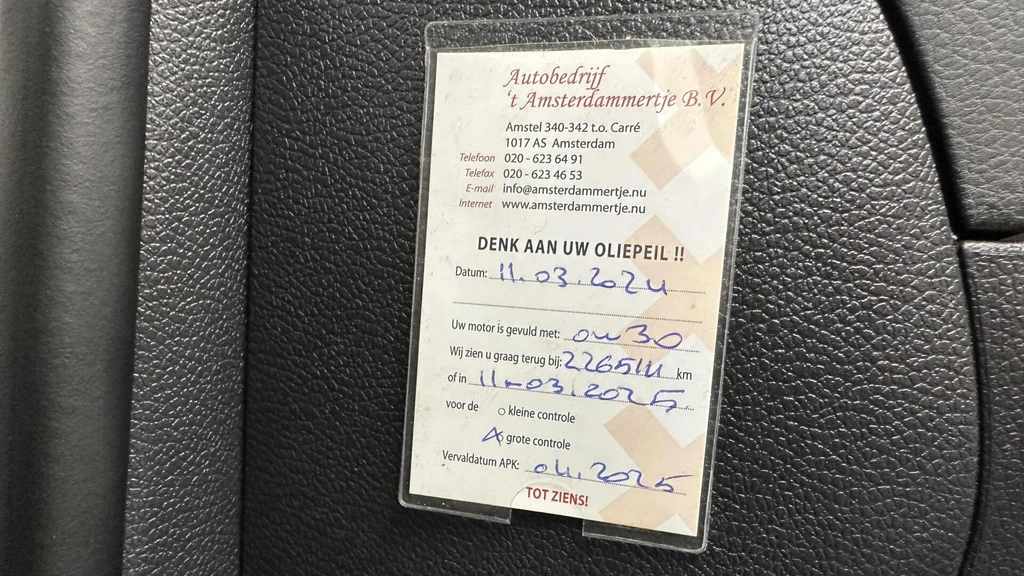 Autobedrijf
't Amsterdammertje B.V.
Amstel 340-342 t.o. Carré
1017 AS Amsterdam
Telefoon 020 - 623 64 91
Telefax 020 - 623 46 53
E-mail info@amsterdammertje.nu
Internet www.amsterdammertje.nu
DENK AAN UW OLIEPEIL !!
Datum: 11.03.2024
Uw motor is gevuld met: 0w30
Wij zien u graag terug bij: km
of in 11-03.2025
voor de kleine controle
grote controle
Vervaldatum APK: 04.2025
TOT ZIENS!